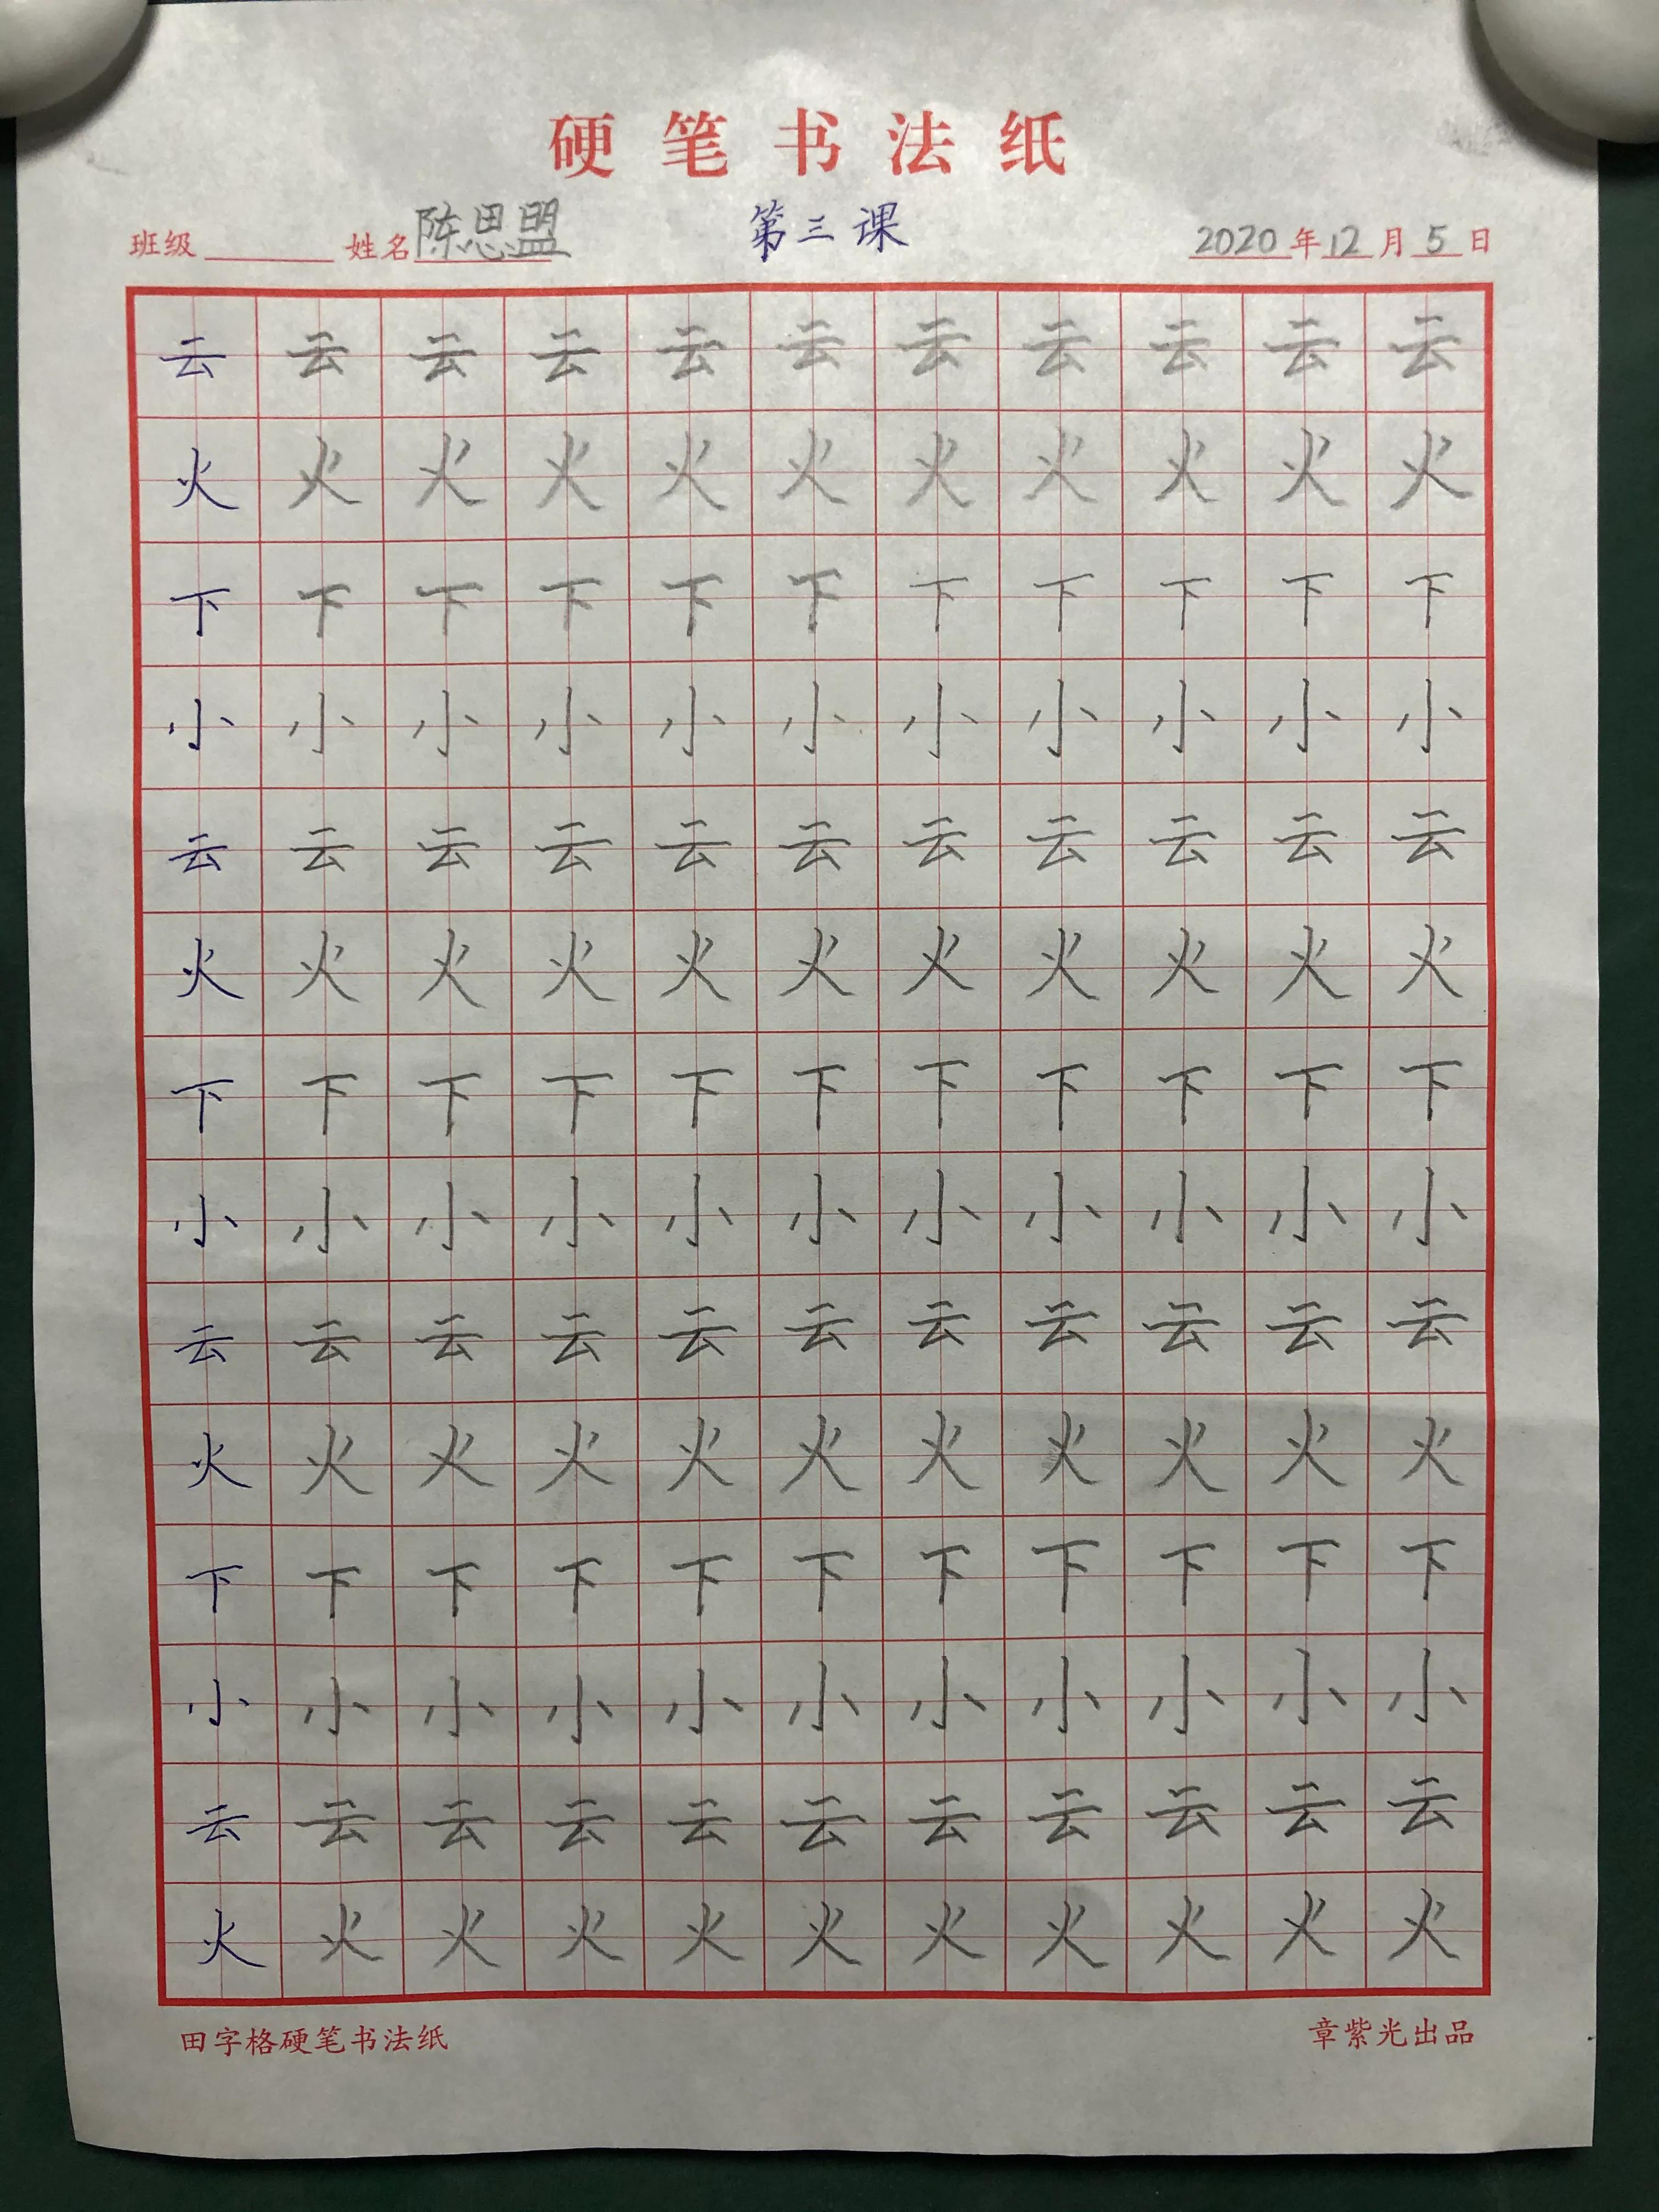 硬笔书法纸
班级 姓名 陈思盟 第三课 2020年12月5日
云云云云云云云云云云云
火火火火火火火火火火火
下下下下下下下下下下下
小小小小小小小小小小小
云云云云云云云云云云云
火火火火火火火火火火火
下下下下下下下下下下下
小小小小小小小小小小小
云云云云云云云云云云云
火火火火火火火火火火火
下下下下下下下下下下下
小小小小小小小小小小小
云云云云云云云云云云云
火火火火火火火火火火火
田字格硬笔书法纸 章紫光出品